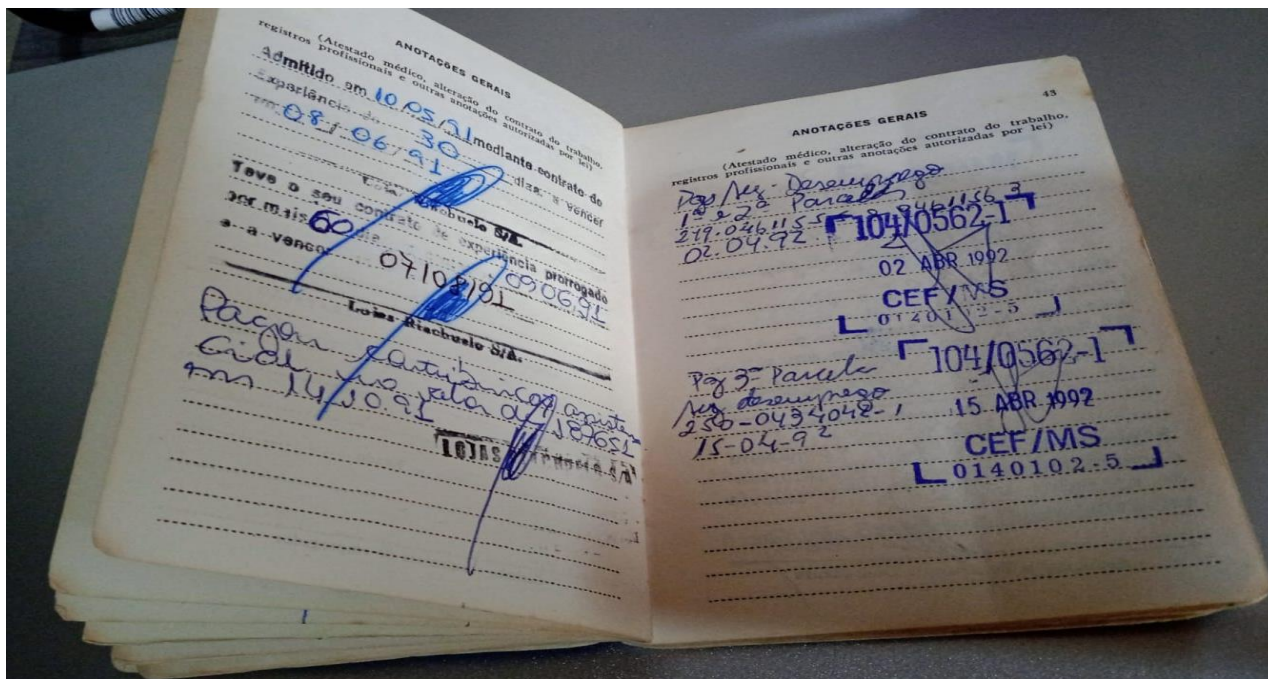 ANOTAÇÕES GERAIS
(Atestado médico, alteração do contrato do trabalho,
registros profissionais e outras anotações autorizadas por lei)
Admitido em 10/05/91 mediante contrato de
Experiência de 30 dias a vencer
em 08/06/91
Lojas Riachuelo S/A.
Teve o seu contrato de experiência prorrogado
por mais 60 090691
e a vencer 07/08/91
Lojas Riachuelo S/A.
Pagou
no valor de
em 14.10.91
LOJAS RIACHUELO S/A
43
ANOTAÇÕES GERAIS
(Atestado médico, alteração do contrato do trabalho,
registros profissionais e outras anotações autorizadas por lei)
Pag Seg-Desemprego
1ª e 2ª Parcelas
02.04.92
104/0562-1
02 ABR 1992
CEF/MS
0140102-5
Pag 3ª Parcela
Seg desemprego
250-0434048-1
15-04-92
104/0562-1
15 ABR 1992
CEF/MS
0140102-5